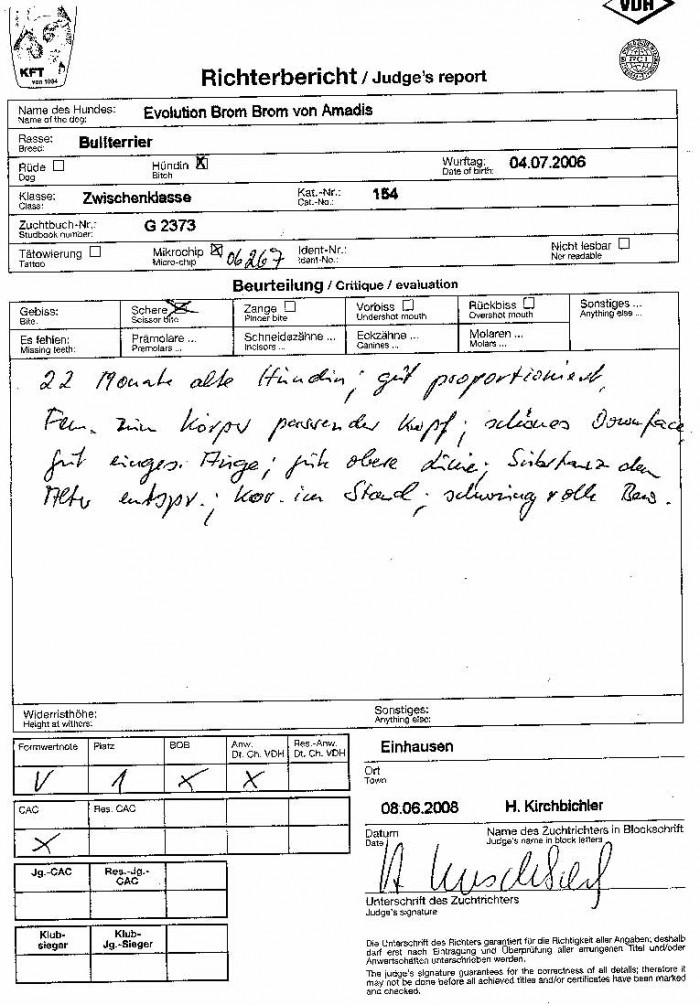 VDH
KFT
von 1894
Richterbericht / Judge's report
Name des Hundes: Evolution Brom Brom von Amadis
Name of the dog:
Rasse: Bullterrier
Breed:
Rüde ☐ Hündin ☒ Wurftag: 04.07.2006
Dog Bitch Date of birth:
Klasse: Zwischenklasse Kat.-Nr.: 154
Class: Cat.-No.:
Zuchtbuch-Nr.: G 2373
Studbook number:
Tätowierung ☐ Mikrochip ☒ 06267 Ident-Nr.: Nicht lesbar ☐
Tattoo Micro-chip Ident-No.: Not readable
Beurteilung / Critique / evaluation
Gebiss: Schere ☒ Zange ☐ Vorbiss ☐ Rückbiss ☐ Sonstiges ...
Bite: Scissor bite Pincer bite Undershot mouth Overshot mouth Anything else ...
Es fehlen: Prämolare ... Schneidezähne ... Eckzähne ... Molaren ...
Missing teeth: Premolars ... Incisors ... Canines ... Molars ...
22 Monate alte Hündin; gut proportioniert,
Fem. zum Körper passender Kopf; schönes Downface
gut einges. Auge; gute obere Linie; Substanz dem
Alter entspr.; kor. im Stand; schwungvolle Bew.
Widerristhöhe: Sonstiges:
Height at withers: Anything else:
Formwertnote Platz BOB Anw. Dt. Ch. VDH Res.-Anw. Dt. Ch. VDH
V 1 X X
Einhausen
Ort
Town
CAC Res. CAC
X
08.06.2008 H. Kirchbichler
Datum Name des Zuchtrichters in Blockschrift
Date Judge's name in block letters
Jg.-CAC Res.-Jg.-CAC
Unterschrift des Zuchtrichters
Judge's signature
Klub-sieger Klub-Jg.-Sieger
Die Unterschrift des Richters garantiert für die Richtigkeit aller Angaben; deshalb
darf erst nach Eintragung und Überprüfung aller errungenen Titel und/oder
Anwartschaften unterschrieben werden.
The judge's signature guarantees for the correctness of all details; therefore it
may not be done before all achieved titles and/or certificates have been marked
and checked.